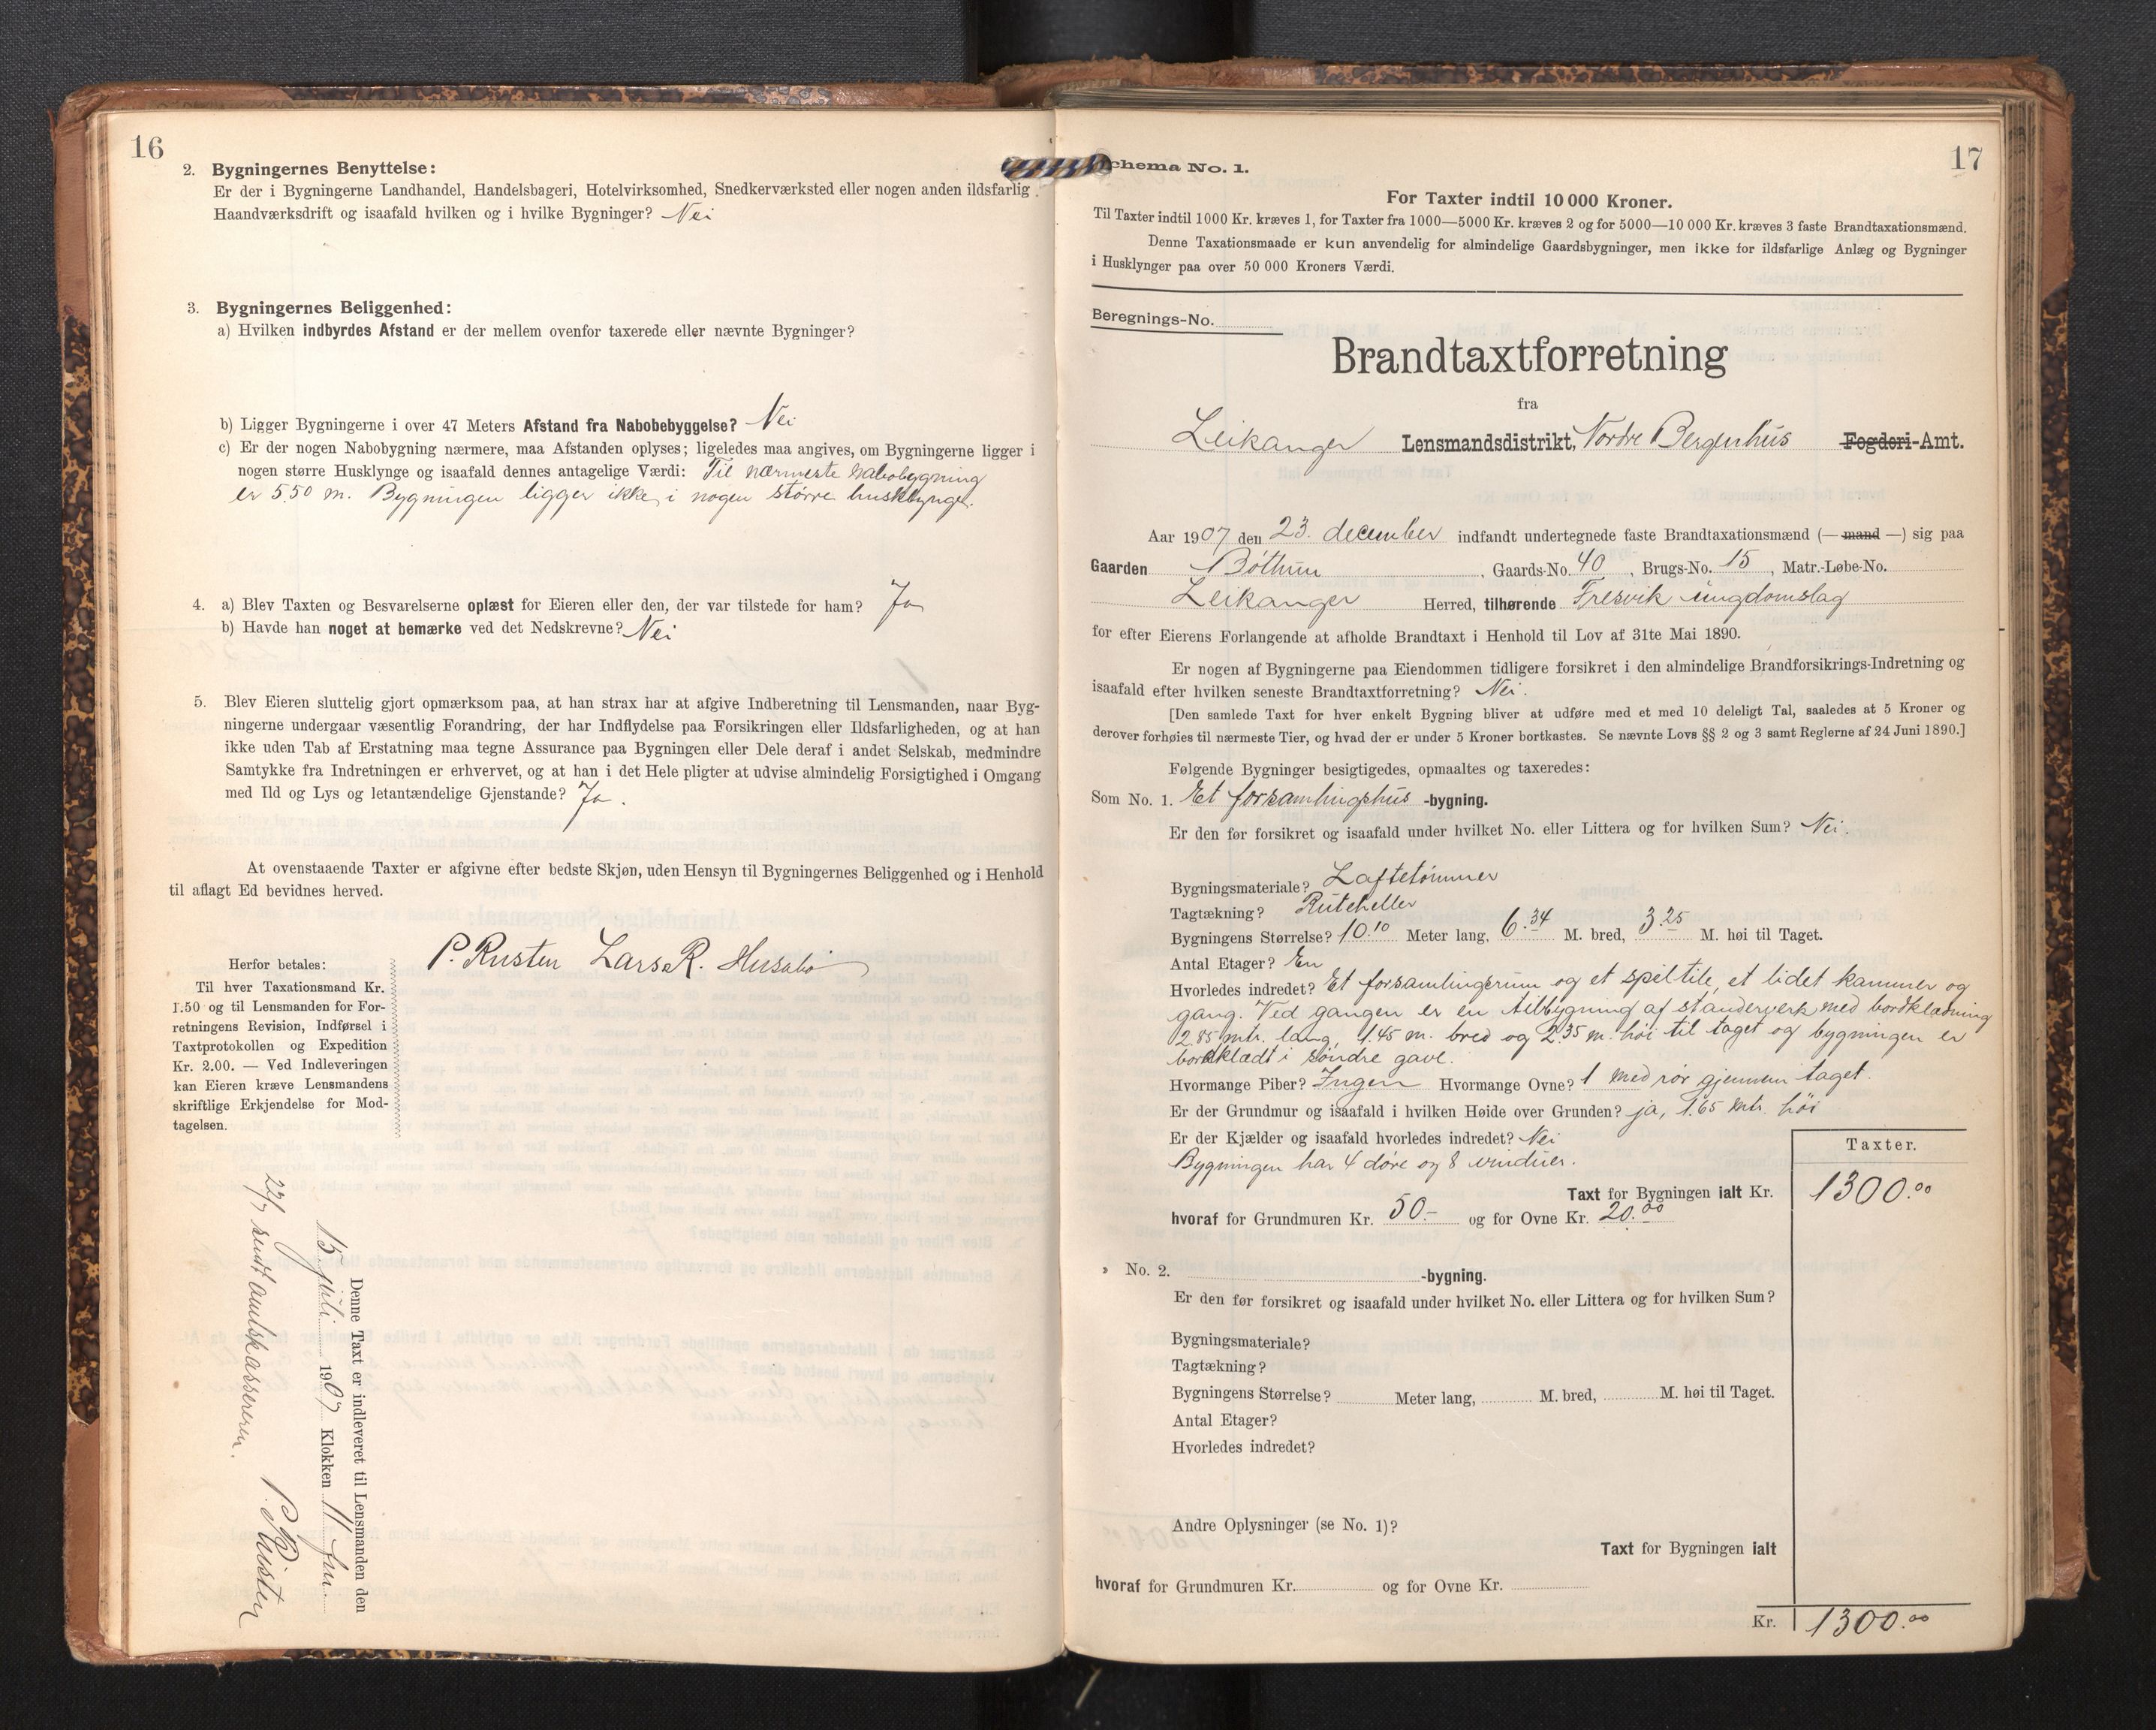 16
2. Bygningernes Benyttelse:
Er der i Bygningerne Landhandel, Handelsbageri, Hotelvirksomhed, Snedkerværksted eller nogen anden ildsfarlig
Haandværksdrift og isaafald hvilken og i hvilke Bygninger? Nei
3. Bygningernes Beliggenhed:
a) Hvilken indbyrdes Afstand er der mellem ovenfor taxerede eller nævnte Bygninger?
b) Ligger Bygningerne i over 47 Meters Afstand fra Nabobebyggelse? Nei
c) Er der nogen Nabobygning nærmere, maa Afstanden oplyses; ligeledes maa angives, om Bygningerne ligger i
nogen større Husklynge og isaafald dennes antagelige Værdi: Til nærmeste nabobygning
er 5.50 m. Bygningen ligger ikke i nogen større husklynge.
4. a) Blev Taxten og Besvarelserne oplæst for Eieren eller den, der var tilstede for ham? Ja
b) Havde han noget at bemærke ved det Nedskrevne? Nei
5. Blev Eieren sluttelig gjort opmærksom paa, at han strax har at afgive Indberetning til Lensmanden, naar Byg-
ningerne undergaar væsentlig Forandring, der har Indflydelse paa Forsikringen eller Ildsfarligheden, og at han
ikke uden Tab af Erstatning maa tegne Assurance paa Bygningen eller Dele deraf i andet Selskab, medmindre
Samtykke fra Indretningen er erhvervet, og at han i det Hele pligter at udvise almindelig Forsigtighed i Omgang
med Ild og Lys og letantændelige Gjenstande? Ja.
At ovenstaaende Taxter er afgivne efter bedste Skjøn, uden Hensyn til Bygningernes Beliggenhed og i Henhold
til aflagt Ed bevidnes herved.
P. Rusten Lars R. Husabø
Herfor betales:
Til hver Taxationsmand Kr.
1.50 og til Lensmanden for For-
retningens Revision, Indførsel i
Taxtprotokollen og Expedition
Kr. 2.00. — Ved Indleveringen
kan Eieren kræve Lensmandens
skriftlige Erkjendelse for Mod-
tagelsen.
Denne Taxt er indleveret til Lensmanden den
15 juli 1907 Klokken 11 fm.
P. Rusten
22/7 sendt amtskassereren.
17
chema No. 1.
For Taxter indtil 10 000 Kroner.
Til Taxter indtil 1000 Kr. kræves 1, for Taxter fra 1000—5000 Kr. kræves 2 og for 5000—10 000 Kr. kræves 3 faste Brandtaxationsmænd.
Denne Taxationsmaade er kun anvendelig for almindelige Gaardsbygninger, men ikke for ildsfarlige Anlæg og Bygninger
i Husklynger paa over 50 000 Kroners Værdi.
Beregnings-No.
Brandtaxtforretning
fra
Leikanger Lensmandsdistrikt, Nordre Bergenhus Fogderi-Amt.
Aar 1907 den 23. december indfandt undertegnede faste Brandtaxationsmænd (— mand —) sig paa
Gaarden Böthun, Gaards-No. 40, Brugs-No. 15, Matr.-Løbe-No.
Leikanger Herred, tilhørende Fresvik ungdomslag
for efter Eierens Forlangende at afholde Brandtaxt i Henhold til Lov af 31te Mai 1890.
Er nogen af Bygningerne paa Eiendommen tidligere forsikret i den almindelige Brandforsikrings-Indretning og
isaafald efter hvilken seneste Brandtaxtforretning? Nei.
[Den samlede Taxt for hver enkelt Bygning bliver at udføre med et med 10 deleligt Tal, saaledes at 5 Kroner og
derover forhøies til nærmeste Tier, og hvad der er under 5 Kroner bortkastes. Se nævnte Lovs §§ 2 og 3 samt Reglerne af 24 Juni 1890.]
Følgende Bygninger besigtigedes, opmaaltes og taxeredes:
Som No. 1. Et forsamlingshus -bygning.
Er den før forsikret og isaafald under hvilket No. eller Littera og for hvilken Sum? Nei.
Bygningsmateriale? Laftetømmer
Tagtækning? Ruteheller
Bygningens Størrelse? 10.10 Meter lang, 6.34 M. bred, 3.25 M. høi til Taget.
Antal Etager? En
Hvorledes indredet? Et forsamlingsrum og et speltile, et lidet kammer og
gang. Ved gangen er en tilbygning af standerverk med bordklædning
2.85 mtr. lang, 1.45 m. bred og 2.35 m. høi til taget og bygningen er
bordklædt i søndre gave.
Hvormange Piber? Ingen Hvormange Ovne? 1 med rør gjennem taget.
Er der Grundmur og isaafald i hvilken Høide over Grunden? ja, 1.65 mtr. høi
Er der Kjælder og isaafald hvorledes indredet? Nei
Bygningen har 4 døre og 8 vinduer.
Taxter.
Taxt for Bygningen ialt Kr. 1300.00
hvoraf for Grundmuren Kr. 50.- og for Ovne Kr. 20.00
No. 2. -bygning.
Er den før forsikret og isaafald under hvilket No. eller Littera og for hvilken Sum?
Bygningsmateriale?
Tagtækning?
Bygningens Størrelse? Meter lang, M. bred, M. høi til Taget.
Antal Etager?
Hvorledes indredet?
Andre Oplysninger (se No. 1)?
Taxt for Bygningen ialt
hvoraf for Grundmuren Kr. og for Ovne Kr.
Kr. 1300.00